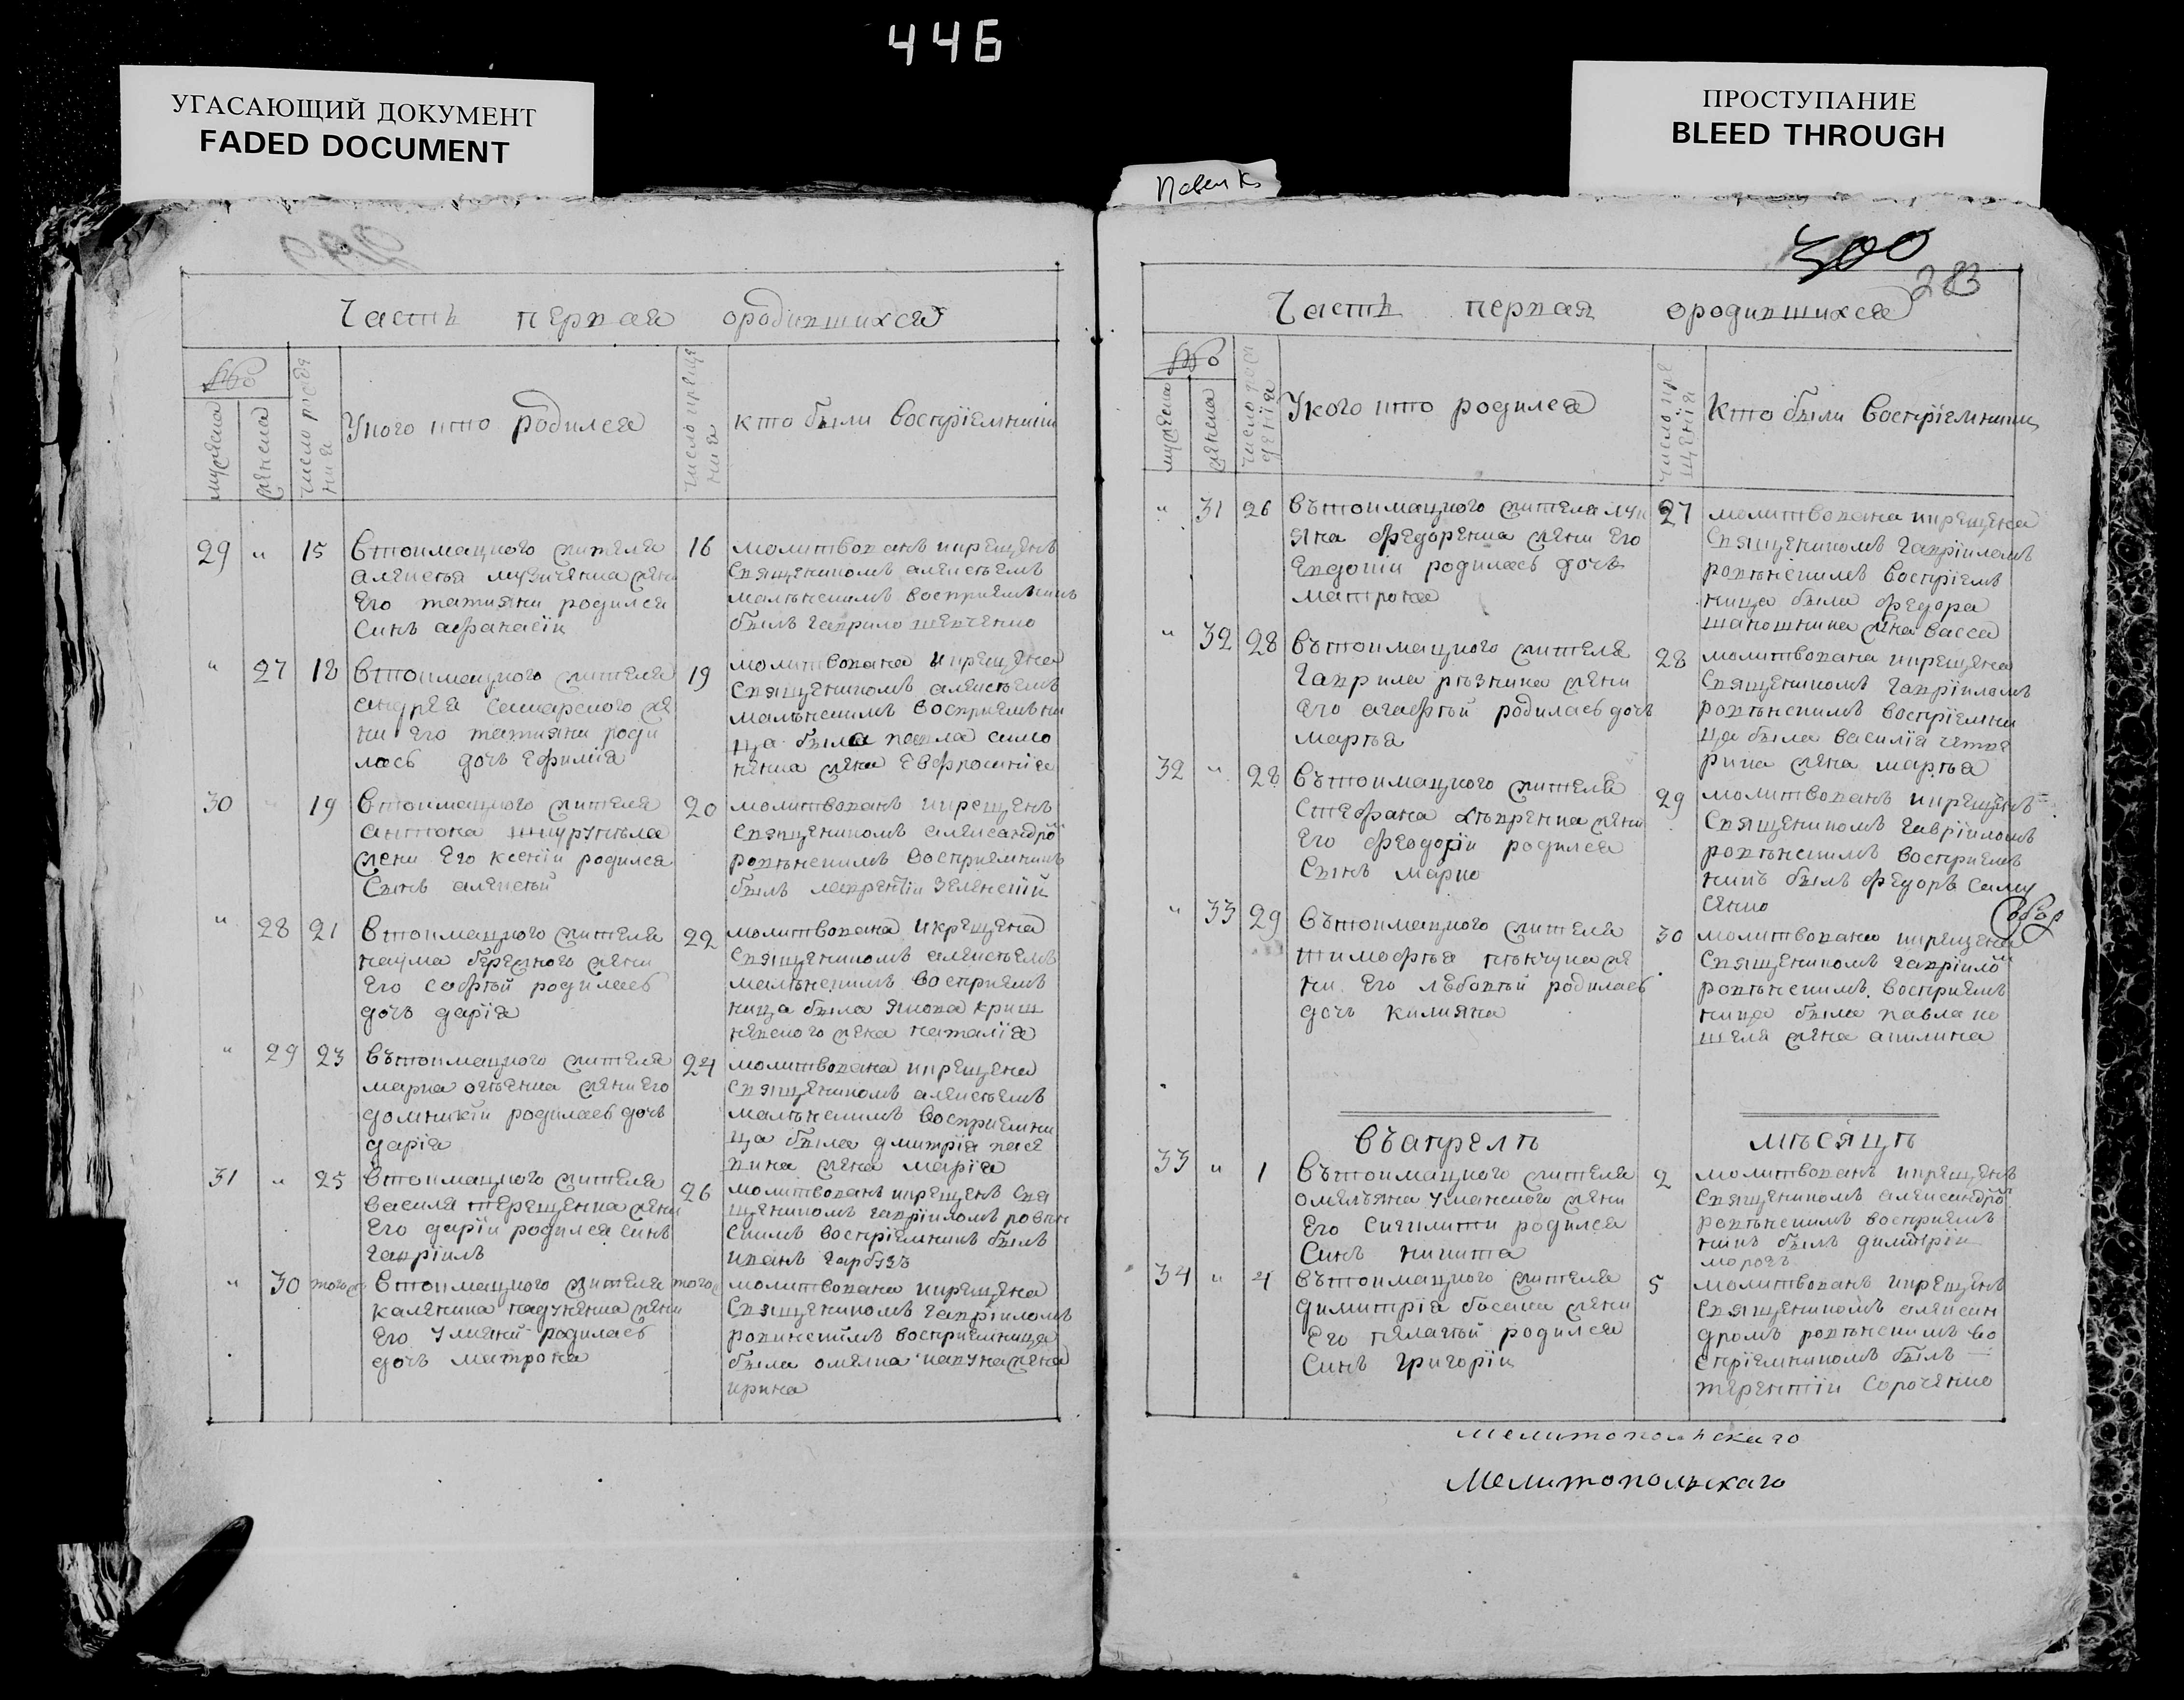 446
УГАСАЮЩИЙ ДОКУМЕНТ
FADED DOCUMENT
ПРОСТУПАНИЕ
BLEED THROUGH
299
Часть первая ородившихся
№
мужеска
женска
число рожде
ния
Укого кто родился
число креще
ния
кто были восприемники
29 " 15 16
втокмацкого жителя
алексея музиченка жени
его татияни родился
синъ афанасій
молитвованъ икрещенъ
священикомъ алексеемъ
мальнскимъ восприемникъ
былъ гаврило шевченко
" 27 18 19
втокмацкого жителя
андрея самарского же
ни его татияни роди
лась дочь ефимія
молитвована икрещена
священикомъ алексеемъ
мальнскимъ восприемни
ца была павла симо
ненка жена евфросинія
30 19 20
втокмацкого жителя
антона
жени его ксеніи родился
сынъ алексей
молитвованъ икрещенъ
священикомъ александро
ровѣнскимъ восприемникъ
былъ лаврентіи зеленскій
" 28 21 22
втокмацкого жителя
наума бережного жени
его софѣй родилась
дочь дарія
молитвована икрещена
священикомъ алексеемъ
мальнскимъ восприемъ
ница была якова криш
невского жена наталія
" 29 23 24
вътокмацкого жителя
марка жени его
домникіи родилась дочь
дарія
молитвована икрещена
священикомъ алексѣемъ
мальнскимъ восприемни
ца была дмитрія
жена марія
31 " 25 26
втокмацкого жителя
василя терещенка жени
его даріи родился синъ
гавріилъ
молитвованъ икрещенъ свя
щеникомъ гавріиломъ ровѣн
скимъ воспріемникъ былъ
иванъ гарбузъ
" 30 того ж того ж
втокмацкого жителя
каленика жени
его уліяни родилась
дочь матрона
молитвована икрещена
священикомъ гавріиломъ
ровинскимъ восприемница
была омелка жена
ирина
300
283
Часть первая ородившихся
№
мужеска
женска
число рож
денія
Укого кто родился
число кре
щенія
Кто были воспріемники
" 31 26 27
вътокмацкого жителя луки
яна федоренка жени его
евдокіи родилась дочь
матрона
молитвована икрещена
священикомъ гавріиломъ
ровѣнскимъ воспріемъ
ница была федора
шапошника жена васса
" 32 28 28
вътокмацкого жителя
гаврила рѣзника жени
его агафѣй родилась дочь
марѳа
молитвована икрещена
священикомъ гавріиломъ
ровѣнскимъ воспріемни
ца была василія четве
рика жена марѳа
32 " 28 29
вътокмацкого жителя
стефана жени
его феодоріи родился
сынъ марко
молитвованъ икрещенъ
священикомъ гавріиломъ
ровѣнскимъ восприемъ
никъ былъ федоръ саму
сенко
" 33 29 30
вътокмацкого жителя
тимофѣя же
ни его родилась
дочь килияна
молитвована икрещена
священикомъ гавріило
ровѣнскимъ восприемъ
ница была павла ко
шеля жена акилина
въапрелѣ мѣсяцѣ
33 " 1 2
вътокмацкого жителя
омельяна уманского жени
его родился
синъ никита
молитвованъ икрещенъ
священикомъ александро
ровѣнскимъ восприемъ
никъ былъ димитріи
морозъ
34 " 4 5
вътокмацкого жителя
димитрія босака жени
его пелагѣй родился
синъ григоріи
молитвованъ икрещенъ
священикомъ алексан
дромъ ровѣнскимъ во
спріемникомъ былъ
терентіи сороченко
мелитопольскаго
Мелитопольскаго